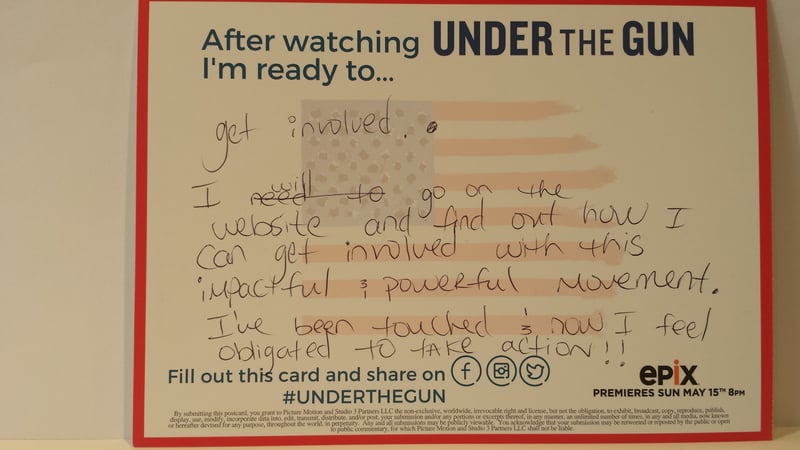 After watching UNDER THE GUN
I'm ready to...
get involved.
will
I need to go on the
website and find out how I
can get involved with this
impactful & powerful movement.
I've been touched & now I feel
obligated to take action!!
Fill out this card and share on
#UNDERTHEGUN
epix
PREMIERES SUN MAY 15TH 8PM
By submitting this postcard, you grant to Picture Motion and Studio 3 Partners LLC the non-exclusive, worldwide, irrevocable right and license, but not the obligation, to exhibit, broadcast, copy, reproduce, publish,
display, use, modify, incorporate data into, edit, transmit, distribute, and/or post, your submission and/or any portions or excerpts thereof, in any manner, an unlimited number of times, in any and all media, now known
or hereafter devised for any purpose, throughout the world, in perpetuity. Any and all submissions may be publicly viewable. You acknowledge that your submission may be retweeted or reposted by the public or open
to public commentary, for which Picture Motion and Studio 3 Partners LLC shall not be liable.